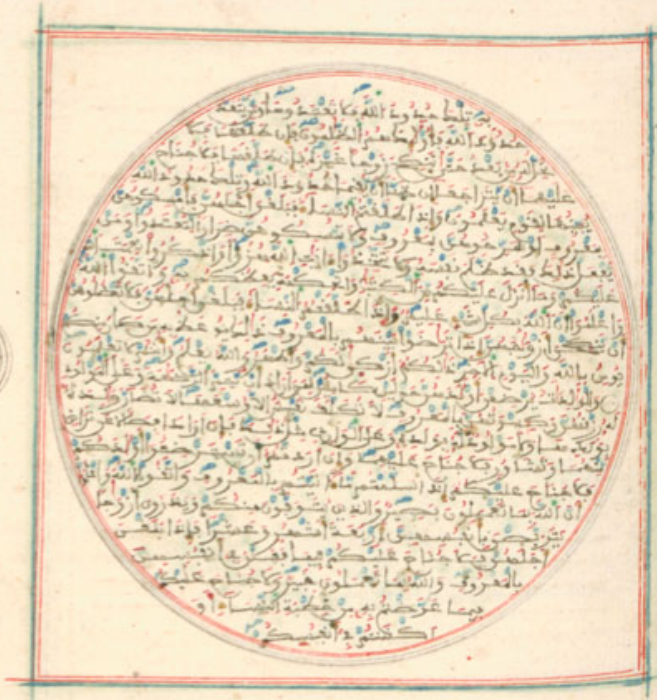 تلك حدود الله فلا تعتدوها ومن يتعد
حدود الله فأولئك هم الظلمون فإن طلقها فلا
تحل له من بعد حتى تنكح زوجا غيره فإن طلقها فلا جناح
عليهما أن يتراجعا إن ظنا أن يقيما حدود الله وتلك حدود الله
يبينها لقوم يعلمون وإذا طلقتم النساء فبلغن أجلهن فأمسكوهن
بمعروف أو سرحوهن بمعروف ولا تمسكوهن ضرارا لتعتدوا ومن
يفعل ذلك فقد ظلم نفسه ولا تتخذوا ءايت الله هزؤا واذكروا نعمت الله
عليكم وما أنزل عليكم من الكتب والحكمة يعظكم به واتقوا الله
واعلموا أن الله بكل شيء عليم وإذا طلقتم النساء فبلغن أجلهن فلا تعضلوهن
أن ينكحن أزوجهن إذا ترضوا بينهم بالمعروف ذلك يوعظ به من كان منكم
يومن بالله واليوم الاخر ذلكم أزكى لكم وأطهر والله يعلم وأنتم لا تعلمون
والولدت يرضعن أولدهن حولين كاملين لمن أراد أن يتم الرضعة وعلى المولود
له رزقهن وكسوتهن بالمعروف لا تكلف نفس إلا وسعها لا تضار ولدة
بولدها ولا مولود له بولده وعلى الوارث مثل ذلك فإن أرادا فصالا عن تراض
منهما وتشاور فلا جناح عليهما وإن أردتم أن تسترضعوا أولدكم
فلا جناح عليكم إذا سلمتم ما ءاتيتم بالمعروف واتقوا الله واعلموا
أن الله بما تعملون بصير والذين يتوفون منكم ويذرون أزوجا
يتربصن بأنفسهن أربعة أشهر وعشرا فإذا بلغن
أجلهن فلا جناح عليكم فيما فعلن في أنفسهن
بالمعروف والله بما تعملون خبير ولا جناح عليكم
فيما عرضتم به من خطبة النساء أو
أكننتم في أنفسكم